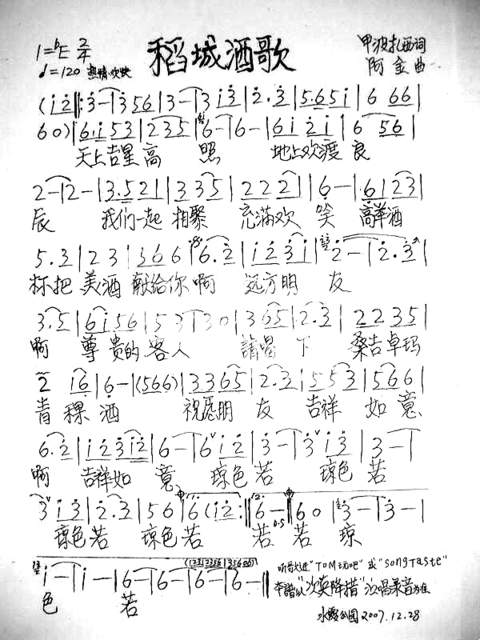 稻城酒歌
1=♭E 2/4
♩=120 热情 欢快
甲波扎西词
阿金曲
(i2̇‖:3̇-|3̇56|3̇-|3̇ i3̇|2̇.3̇|5.65i|6 66|
60)|6i53|235|6-|6-|6i2̇i|6 56|
天上吉星高 照 地上欢渡良
2-|2-|3.521|335|222|6-|6|23|
辰 我们一起相聚 充满欢 笑 高举酒
5.3|23|366|6.2̇|i2̇3̇i|2̇-|2̇.3̇|
杯把美酒献给你啊 远方朋 友
3.5|6i56|53|30|365|2.3|2235|
啊 尊贵的客人 請喝下 桑吉卓玛
2 16|6-|(566)|3365|2.3|553|566|
青稞酒 祝愿朋友 吉祥如意
6.2̇|i2̇3̇i2̇|6-|6 i2̇|3̇-|3̇ i3̇|3̇-|
啊 吉祥如意 琼色若 琼色若
3̇ i3̇|2̇.3̇|56|6(i2̇:‖6-|60|3̇-|3̇-|
琼色若 琼色若 若 若 琼
i-|i-|6-|6-|6-|6-‖
色 若
"TOM 或 "SONGTASTE"
2007.12.28